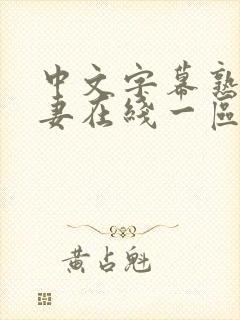 中文字幕熟
妻在綫一區
黄占魁